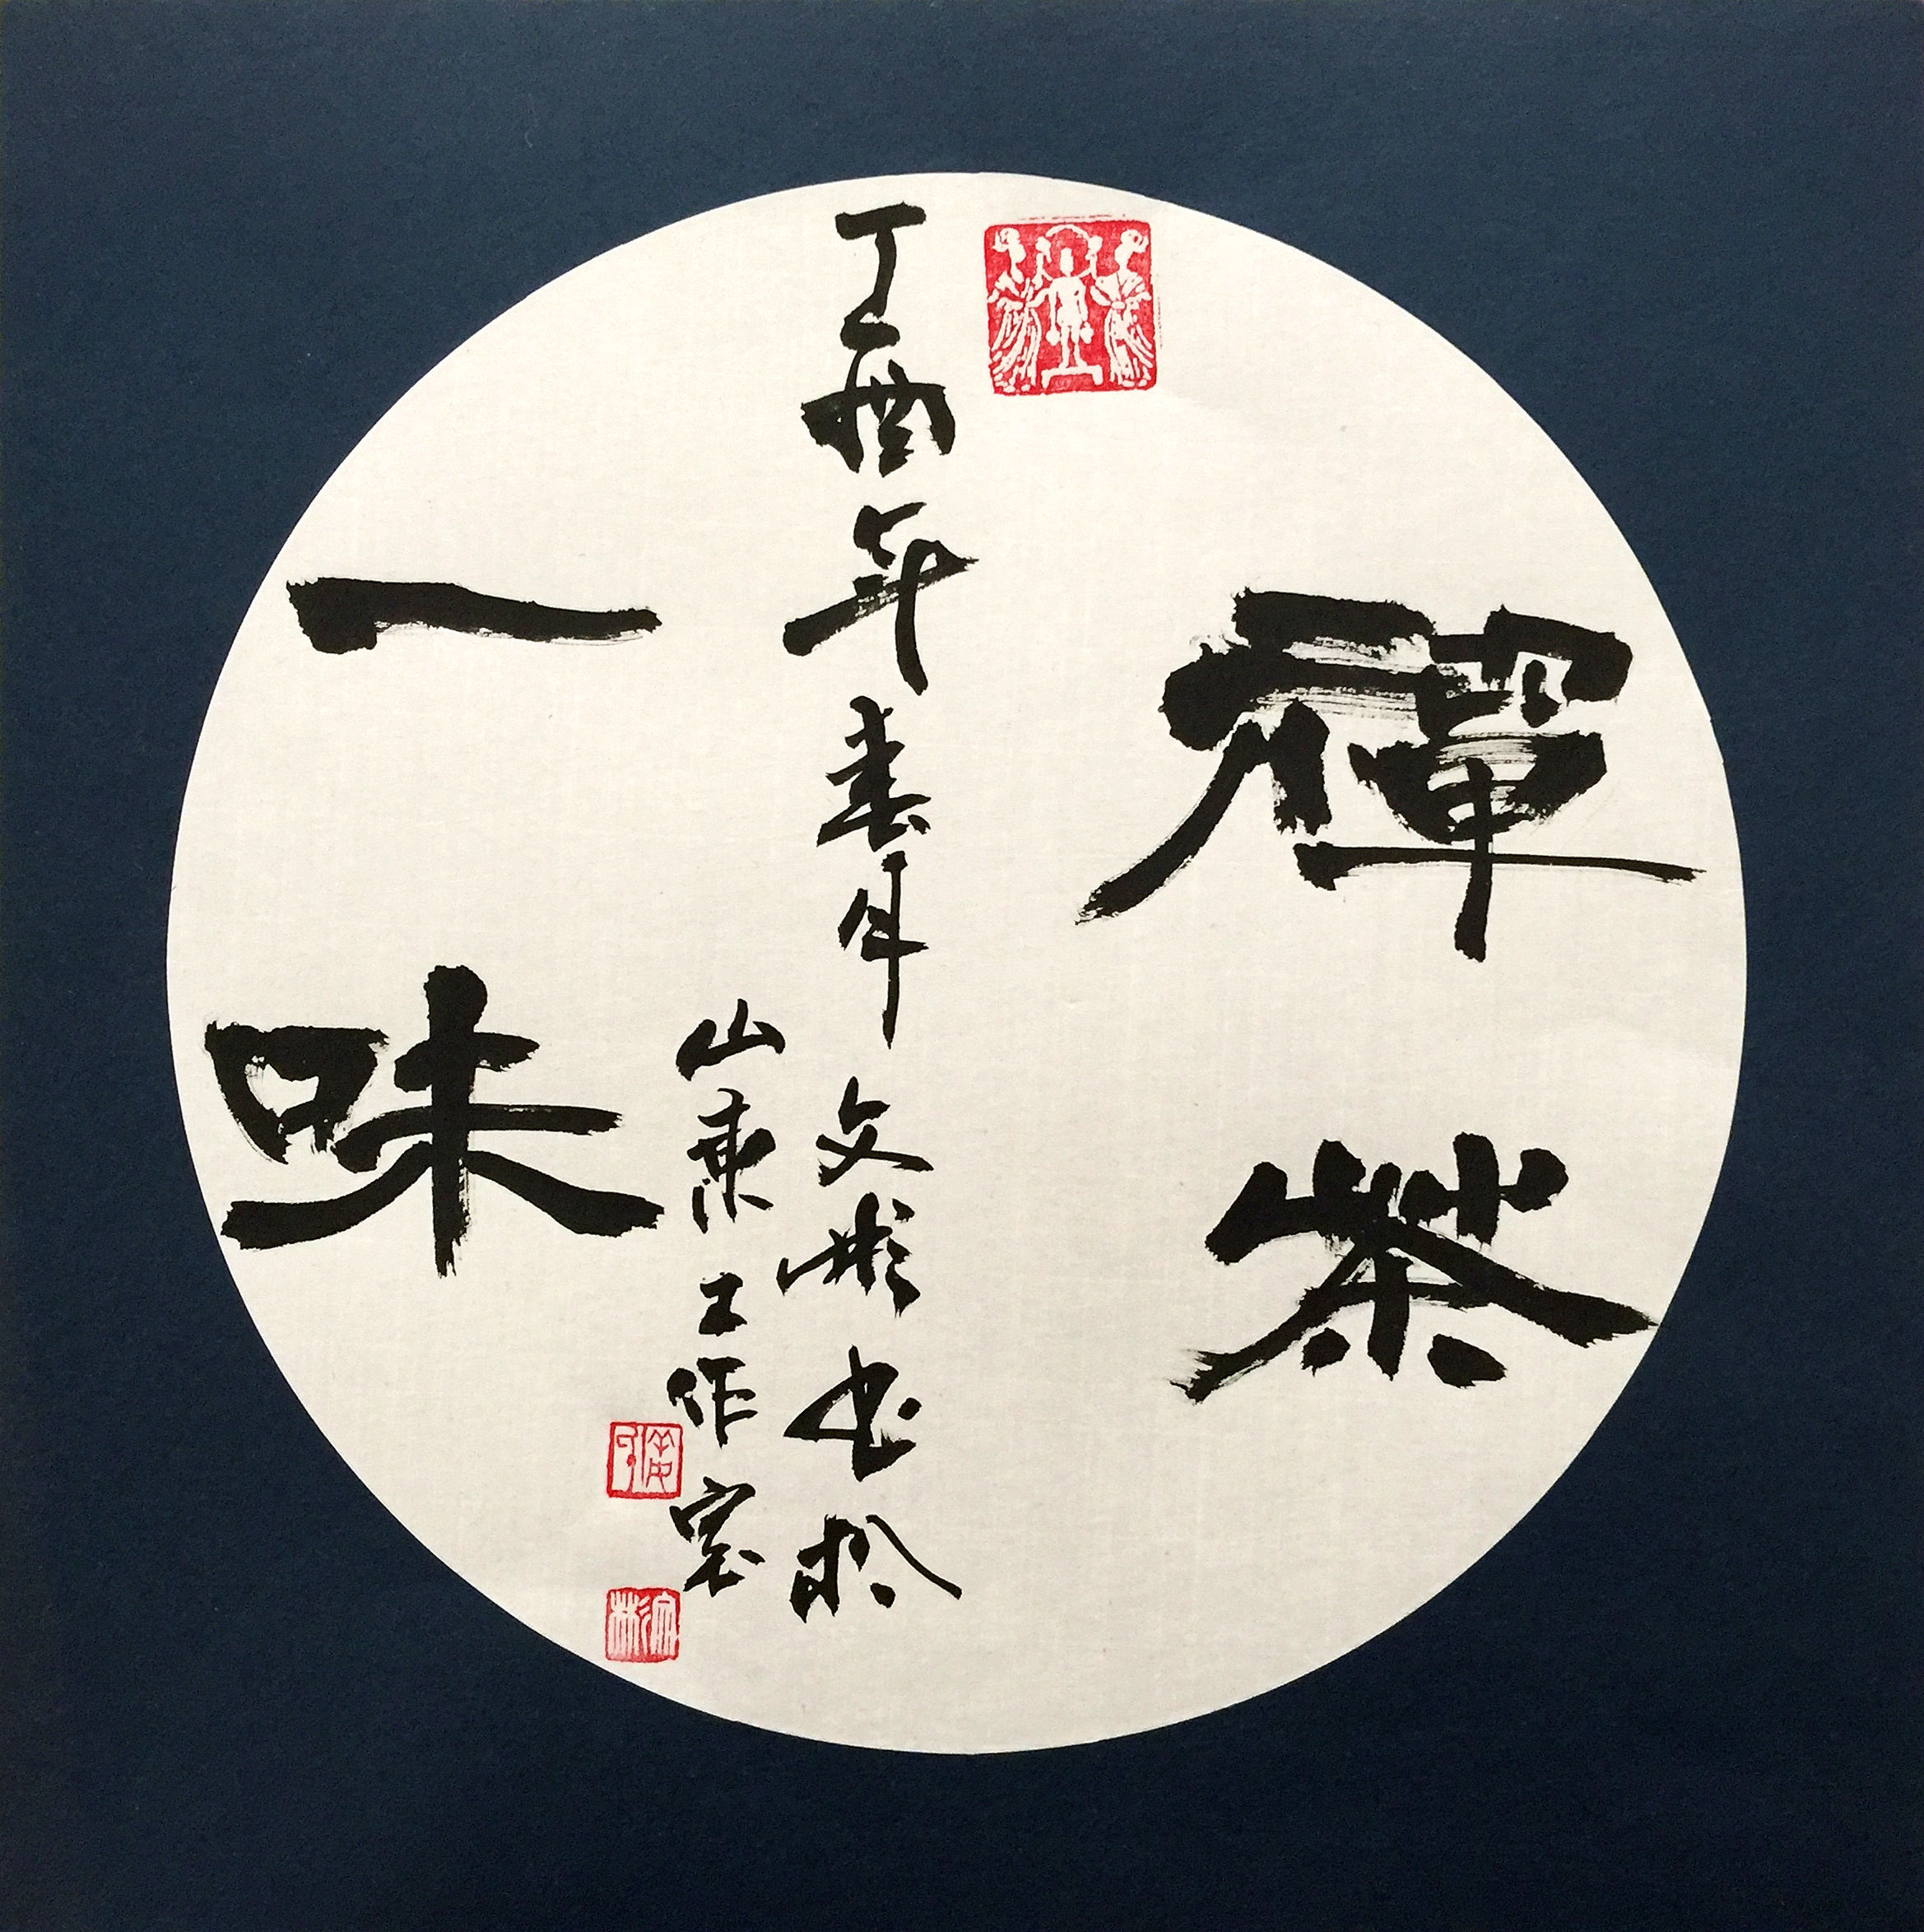 禪茶
一味
丁酉年春月文彬书於
山東工作室